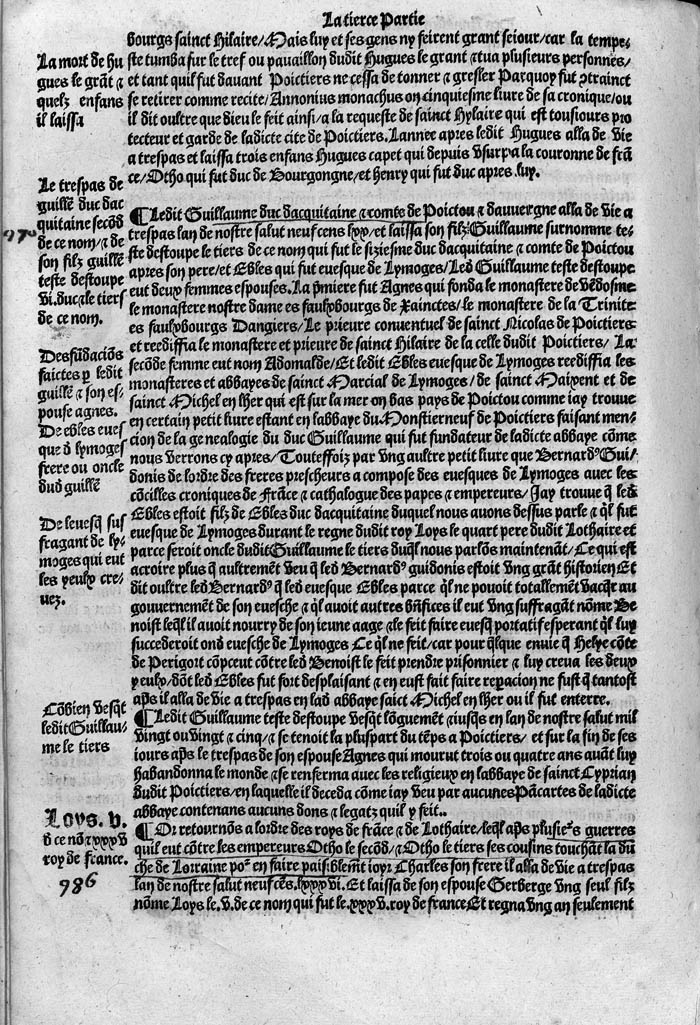 La tierce Partie
bourgs sainct Hilaire/Mais luy et ses gens ny feirent grant seiour/car la tempe⸗
ste tumba sur le tref ou pauaillon dudit Hugues le grant ⁊ tua plusieurs personnes/
et tant quil fut dauant Poictiers ne cessa de tonner ⁊ gresler Parquoy fut ꝯtrainct
se retirer comme recite/Annonius monachus on cinquiesme liure de sa cronique/ou
il dit oultre que dieu le feit ainsi/a la requeste de sainct Hylaire qui est tousiours pro
tecteur et garde de ladicte cite de Poictiers. Lannee apres ledit Hugues alla de vie
a trespas et laissa trois enfans Hugues capet qui depuis vsurpa la couronne de frā
ce/Otho qui fut duc de Bourgongne/et henry qui fut duc apres luy.
La mort de hu
gues le grāt ⁊
quelz enfans
il laissa
¶Ledit Guillaume duc dacquitaine ⁊ comte de Poictou ⁊ dauuergne alla de vie a
trespas lan de nostre salut neuf cens lxx/et laissa son filz Guillaume surnomme te⸗
ste destoupe le tiers de ce nom qui fut le siziesme duc dacquitaine ⁊ comte de Poictou
apres son pere/et Ebles qui fut euesque de Lymoges/Led Guillaume teste destoupe
eut deux femmes espouses. La p̄miere fut Agnes qui fonda le monastere de vēdosme
le monastere nostre dame es faulxbourgs de Xainctes/le monastere de la Trinite
es faulxbourgs Dangiers/Le prieure conuentuel de sainct Nicolas de Poictiers
et reediffia le monastere et prieure de sainct Hilaire de la celle dudit Poictiers/ La
secōde femme eut nom Adomalde/Et ledit Ebles euesque de Lymoges reediffia les
monasteres et abbayes de sainct Marcial de Lymoges/de sainct Maixent et de
sainct Michel en lher qui est sur la mer on bas pays de Poictou comme iay trouue
en certain petit liure estant en labbaye du Monstierneuf de Poictiers faisant men⸗
cion de la genealogie du duc Guillaume qui fut fundateur de ladicte abbaye cōme
nous verrons cy apres/Touteffoiz par vng aultre petit liure que Bernardꝰ Gui/
donis de lordre des freres prescheurs a compose des euesques de Lymoges auec les
cōcilles croniques de Frāce ⁊ cathalogue des papes ⁊ empereurs/ Jay trouue q̄ led
Ebles estoit filz de Ebles duc dacquitaine duquel nous auons dessus parle ⁊ q̄l fut
euesque de Lymoges durant le regne dudit roy Loys le quart pere dudit Lothaire et
parce seroit oncle dudit Guillaume le tiers duq̄l nous parlōs maintenāt/Ce qui est
acroire plus q̄ aultremēt veu q̄ led Bernardꝰ guidonis estoit vng grāt historien Et
dit oultre led Bernardꝰ q̄ led euesque Ebles parce q̄l ne pouoit totallemēt vacq̄r au
gouuernemēt de son euesche ⁊ q̄l auoit autres bn̄fices il eut vng suffragāt nōme Be
noist leq̄l il auoit nourry de son ieune aage ⁊ le feit faire euesq̄ portatif esperant q̄l luy
succederoit ond euesche de Lymoges Ce q̄l ne feit/car pour q̄lque enuie q̄ Helye cōte
de Perigort cōpceut cōtre led Benoist le feit prendre prisonnier ⁊ luy creua les deux
yeulx/dōt led Ebles fut fort desplaisant ⁊ en eust fait faire repacion ne fust q̄ tantost
ap̄s il alla de vie a trespas en lad abbaye saict Michel en lher ou il fut enterre.
Le trespas de
guillē duc dac
quitaine secōd
de ce nom/⁊ de
son filz guillē
teste destoupe
vi.duc⁊le tiers
de ce nom.
970
Desfūdaciōs
faictes p ledit
guillē ⁊ son es⸗
pouse agnes.
De ebles eues
que d lymoges
frere ou oncle
dud guillē
De leuesq̄ suf
fragant de ly⸗
moges qui eut
les yeulx cre⸗
uez.
¶Ledit Guillaume teste destoupe vesq̄t lōguemēt ⁊iusq̄s en lan de nostre salut mil
vingt ou vingt ⁊ cinq/⁊ se tenoit la pluspart du tēps a Poictiers/ et sur la fin de ses
iours ap̄s le trespas de son espouse Agnes qui mourut trois ou quatre ans auāt luy
habandonna le monde ⁊ se renferma auec les religieux en labbaye de sainct Cyprian
dudit Poictiers/en laquelle il deceda cōme iay veu par aucunes Pancartes de ladicte
abbaye contenans aucuns dons ⁊ legatz quil y feit..
Cōbien vesq̄t
ledit Guillau⸗
me le tiers
¶Or retournōs a lordre des roys de frāce ⁊ de Lothaire/leq̄l ap̄s plusieᷣs guerres
quil eut cōtre les empereurs Otho le secōd/⁊ Otho le tiers ses cousins touchāt la du
che de Lorraine poᷣ en faire paisiblemēt ioyr Charles son frere il alla de vie a trespas
lan de nostre salut neuf cēs.lxxxvi. Et laissa de son espouse Gerberge vng seul filz
nōme Loys le.v.de ce nom qui fut le.xxxv.roy de france Et regna vng an seulement
Loys. v.
d ce nō ⁊ xxxv
roy de france.
986